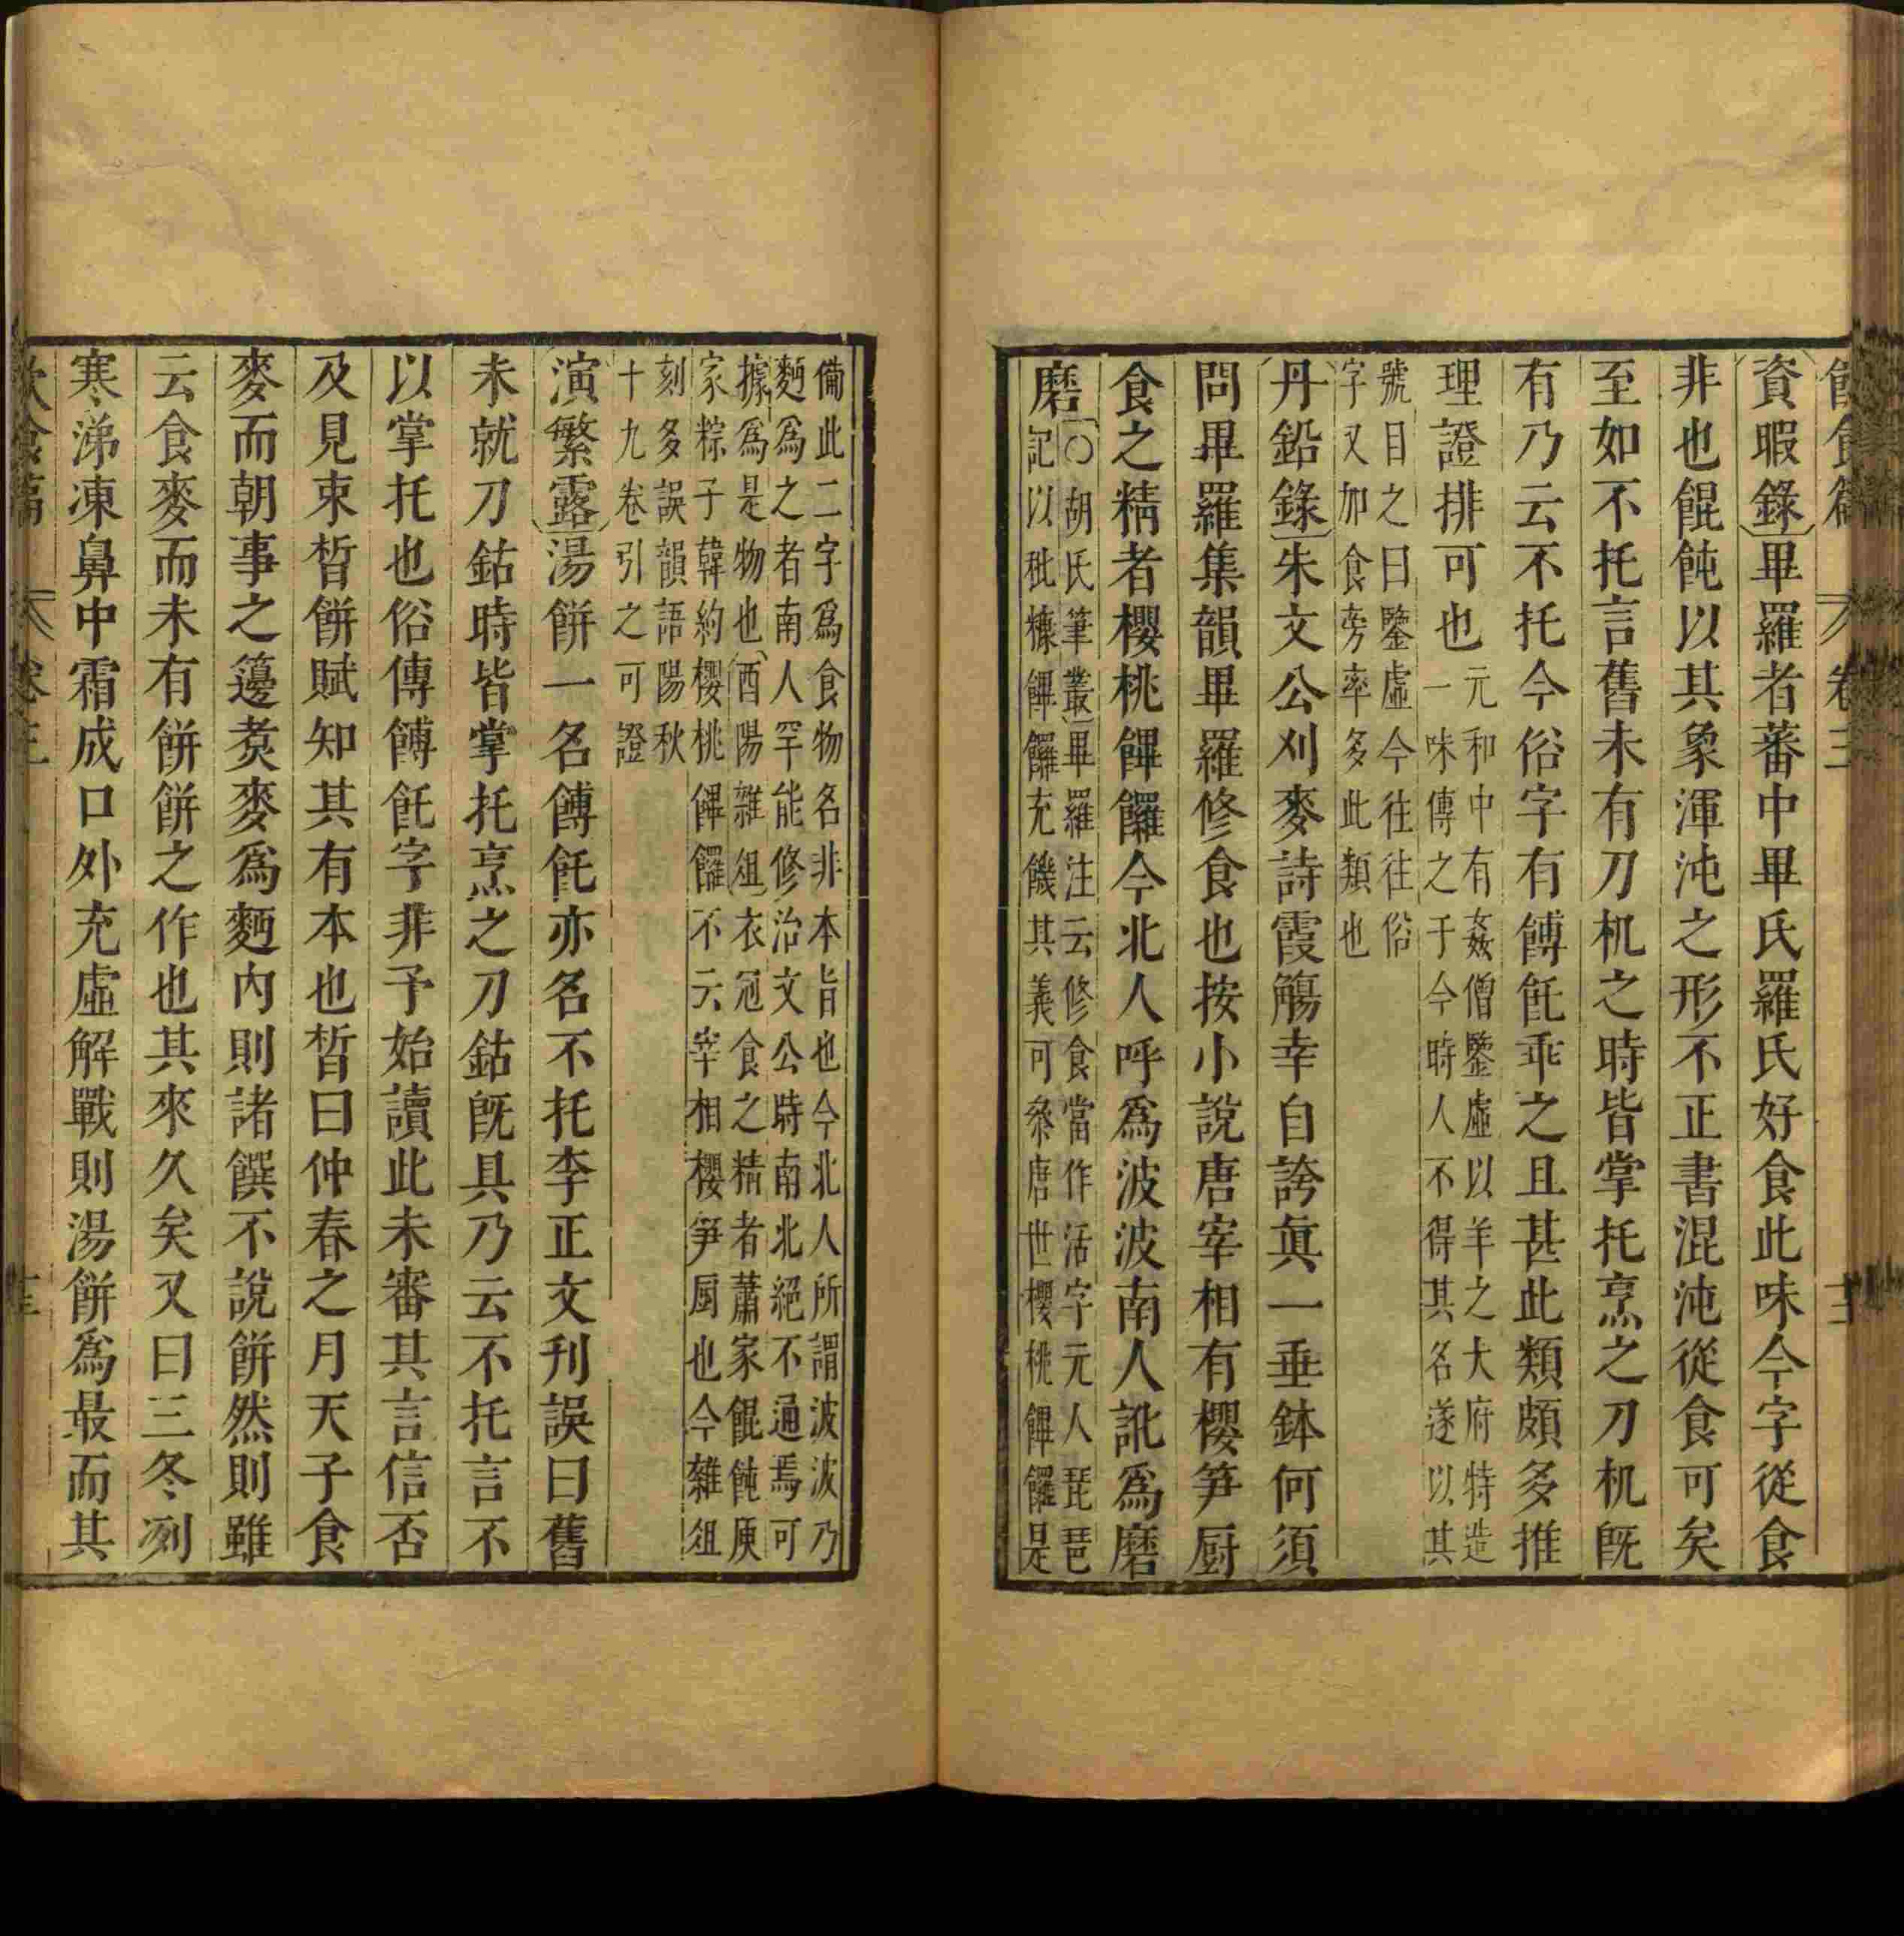 飲食篇 卷三 十二
資暇錄畢羅者蕃中畢氏羅氏好食此味今字從食
非也餛飩以其象渾沌之形不正書混沌從食可矣
至如不托言舊未有刀机之時皆掌托烹之刀机旣
有乃云不托今俗字有餺飥乖之且甚此類頗多推
理證排可也元和中有姦僧鑒虛以羊之大府特造
一味傳之于今時人不得其名遂以其
號目之曰鑒虛今往往俗
字又加食旁率多此類也
丹鉛錄朱文公刈麥詩霞觴幸自誇眞一垂鉢何須
問畢羅集韻畢羅修食也按小說唐宰相有櫻笋厨
食之精者櫻桃饆饠今北人呼爲波波南人訛爲磨
磨○胡氏筆叢畢羅注云修食當作活字元人琵琶
記以秕糠饆饠充饑其義可叅唐世櫻桃饆饠是
備此二字爲食物名非本旨也今北人所謂波波乃
麪爲之者南人罕能修治文公時南北絕不通焉可
據爲是物也酉陽雜俎衣冠食之精者蕭家餛飩庾
家粽子韓約櫻桃饆饠不云宰相櫻笋厨也今雜俎
刻多誤韻語陽秋
十九卷引之可證
演繁露湯餅一名餺飥亦名不托李正文刋誤曰舊
未就刀鈷時皆掌托烹之刀鈷旣具乃云不托言不
以掌托也俗傳餺飥字非予始讀此未審其言信否
及見束晳餅賦知其有本也晳曰仲春之月天子食
麥而朝事之籩煑麥爲麪內則諸饌不說餅然則雖
云食麥而未有餅餅之作也其來久矣又曰三冬冽
寒涕凍鼻中霜成口外充虛解戰則湯餅爲最而其
飲食篇 卷三